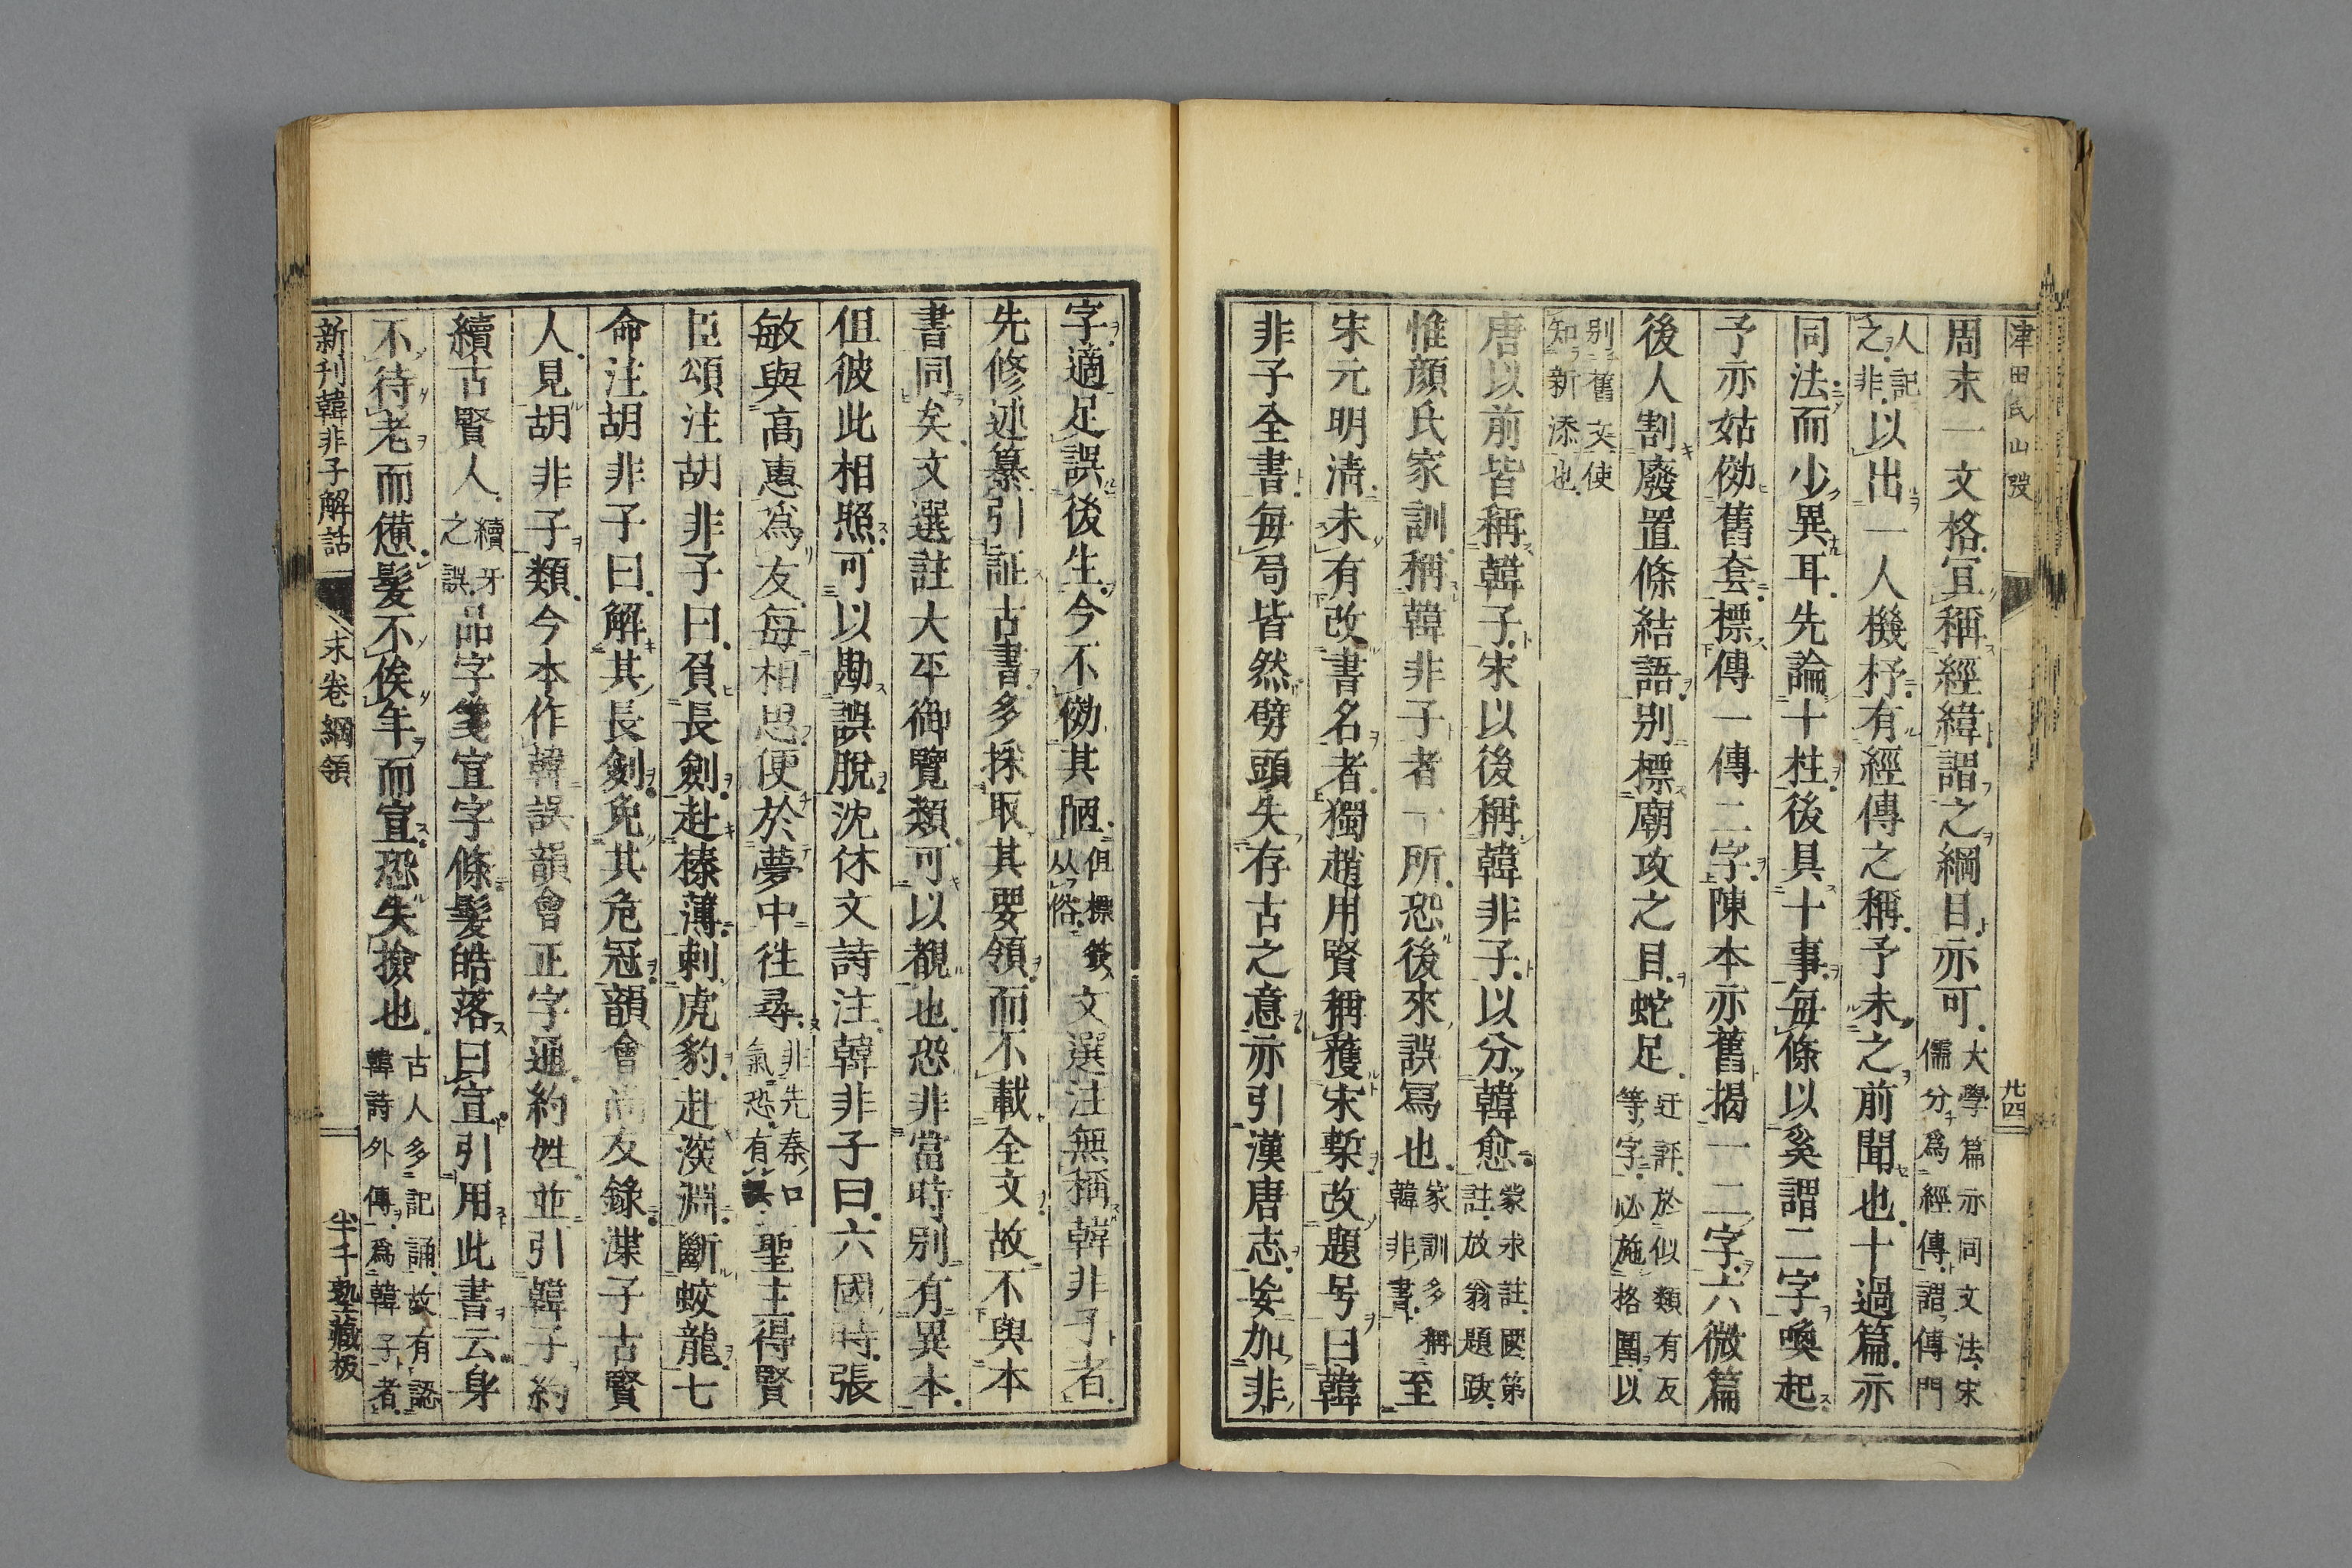 津田氏山𢿙
廿四
周末一文格宜稱經緯謂之綱目亦可大學篇亦同文法宋儒分爲經傳謂傳門
人記之非以出一人機杼有經傳之稱予未之前聞也十過篇亦
同法而少異耳先論十柱後具十事毎條以奚謂二字喚起
予亦姑倣舊套標傳一傳二字陳本亦舊揭一二字六微篇
後人割廢置條結語別標廟攻之目蛇足迂評於似類有反等字必施格圍以
別舊文使知新添也
唐以前皆稱韓子宋以後稱韓非子以分韓愈蒙求註國第註放翁題跋
惟顏氏家訓稱韓非子者一所恐後來誤寫也家訓多稱韓非書至
宋元明淸未有改書名者獨趙用賢稱穫宋槧改題号曰韓
非子全書每局皆然劈頭失存古之意亦引漢唐志妄加非
字適足誤後生今不倣其陋但標簽从俗文選注無稱韓非子者
先修述纂引証古書多採取其要領而不載全文故不與本
書同矣文選註大平御覽類可以覩也恐非當時別有異本
但彼此相照可以勘誤脫沈休文詩注韓非子曰六國時張
敏與高惠爲友每相思便於夢中徃尋非先秦口氣恐有誤聖主得賢
臣頌注胡非子曰負長劍赴榛薄刺虎豹赴深淵斷蛟龍七
命注胡非子曰解其長劍免其危冠韻會尚友錄渫子古賢
人見胡非子類今本作韓誤韻會正字通約姓並引韓子約
續古賢人續牙之誤品字箋宣字條髮皓落曰宣引用此書云身
不待老而憊髮不俟年而宣恐失撿也古人多記誦故有認韓詩外傳爲韓子者
新刊韓非子解詁
末卷綱領
半千塾藏板